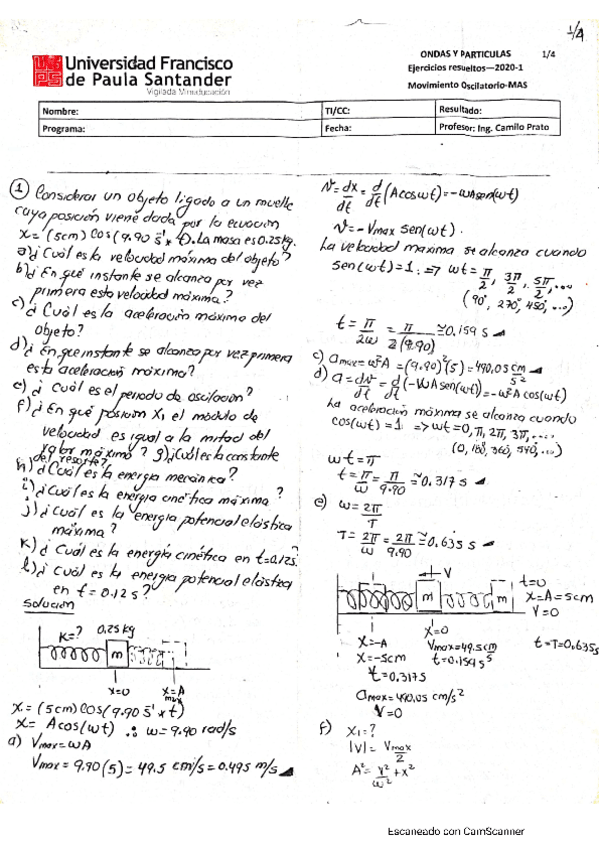 1/4
Universidad Francisco
de Paula Santander
Vigilada Mineducación
ONDAS Y PARTICULAS 1/4
Ejercicios resueltos—2020-1
Movimiento Oscilatorio-MAS
Nombre: TI/CC: Resultado:
Programa: Fecha: Profesor: Ing. Camilo Prato
① Considerar un objeto ligado a un muelle
cuya posición viene dada por la ecuación
x = (5cm) cos (9.90 s⁻¹ * t). La masa es 0.25 kg.
a) ¿Cuál es la velocidad máxima del objeto?
b) ¿En qué instante se alcanza por vez
primera esta velocidad máxima?
c) ¿Cuál es la aceleración máxima del
objeto?
d) ¿En que instante se alcanza por vez primera
esta aceleración máxima?
e) ¿Cuál es el periodo de oscilación?
f) ¿En qué posición X₁ el módulo de
velocidad es igual a la mitad del
valor máximo? g) ¿Cuál es la constante
del resorte?
h) ¿Cuál es la energía mecánica?
i) ¿Cuál es la energía cinética máxima?
j) ¿Cuál es la energía potencial elástica
máxima?
k) ¿Cuál es la energía cinética en t=0.12s.
l) ¿Cuál es la energía potencial elástica
en t = 0.12 s?
Solución
K=? 0.25 kg
m
x=0 x=A
max
x = (5cm) cos (9.90 s⁻¹ * t)
x = A cos(ωt) ∴ ω = 9.90 rad/s
a) Vmax = ωA
Vmax = 9.90 (5) = 49.5 cm/s = 0.495 m/s
v = dx/dt = d/dt (A cos ωt) = -ωA sen(ωt)
v = -Vmax sen(ωt).
La velocidad maxima se alcanza cuando
sen(ωt) = 1. ⇒ ωt = π/2, 3π/2, 5π/2, ...
(90°, 270°, 450°, ...)
t = π/2ω = π/2(9.90) ≅ 0.159 s
c) amax = ω²A = (9.90)²(5) = 490,05 cm/s²
d) a = dv/dt = d/dt (-ωA sen(ωt)) = -ω²A cos(ωt)
La aceleración máxima se alcanza cuando
cos(ωt) = 1 ⇒ ωt = 0, π, 2π, 3π, ....
(0, 180, 360, 540, ...)
ωt = π
t = π/ω = π/9.90 ≅ 0.317 s
e) ω = 2π/T
T = 2π/ω = 2π/9.90 ≅ 0.635 s
V t=0
m m x=A=5cm
V=0
x=-A x=0
x=-5cm Vmax=49.5cm/s t=T=0.635s
t=0.159 s
t=0.317s
amax = 490,05 cm/s²
V=0
f) X₁=?
|V| = Vmax/2
A² = v²/ω² + x²
Escaneado con CamScanner